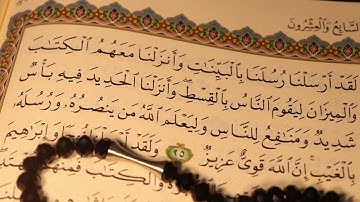 السَّابِعُ وَالْعِشْرُونَ
لَقَدْ أَرْسَلْنَا رُسُلَنَا بِالْبَيِّنَاتِ وَأَنزَلْنَا مَعَهُمُ الْكِتَابَ
وَالْمِيزَانَ لِيَقُومَ النَّاسُ بِالْقِسْطِ وَأَنزَلْنَا الْحَدِيدَ فِيهِ بَأْسٌ
شَدِيدٌ وَمَنَافِعُ لِلنَّاسِ وَلِيَعْلَمَ اللَّهُ مَن يَنصُرُهُ وَرُسُلَهُ
بِالْغَيْبِ إِنَّ اللَّهَ قَوِيٌّ عَزِيزٌ ٢٥ وَلَقَدْ أَرْسَلْنَا نُوحًا وَإِبْرَاهِيمَ
وَالْكِتَابَ فَمِنْهُم